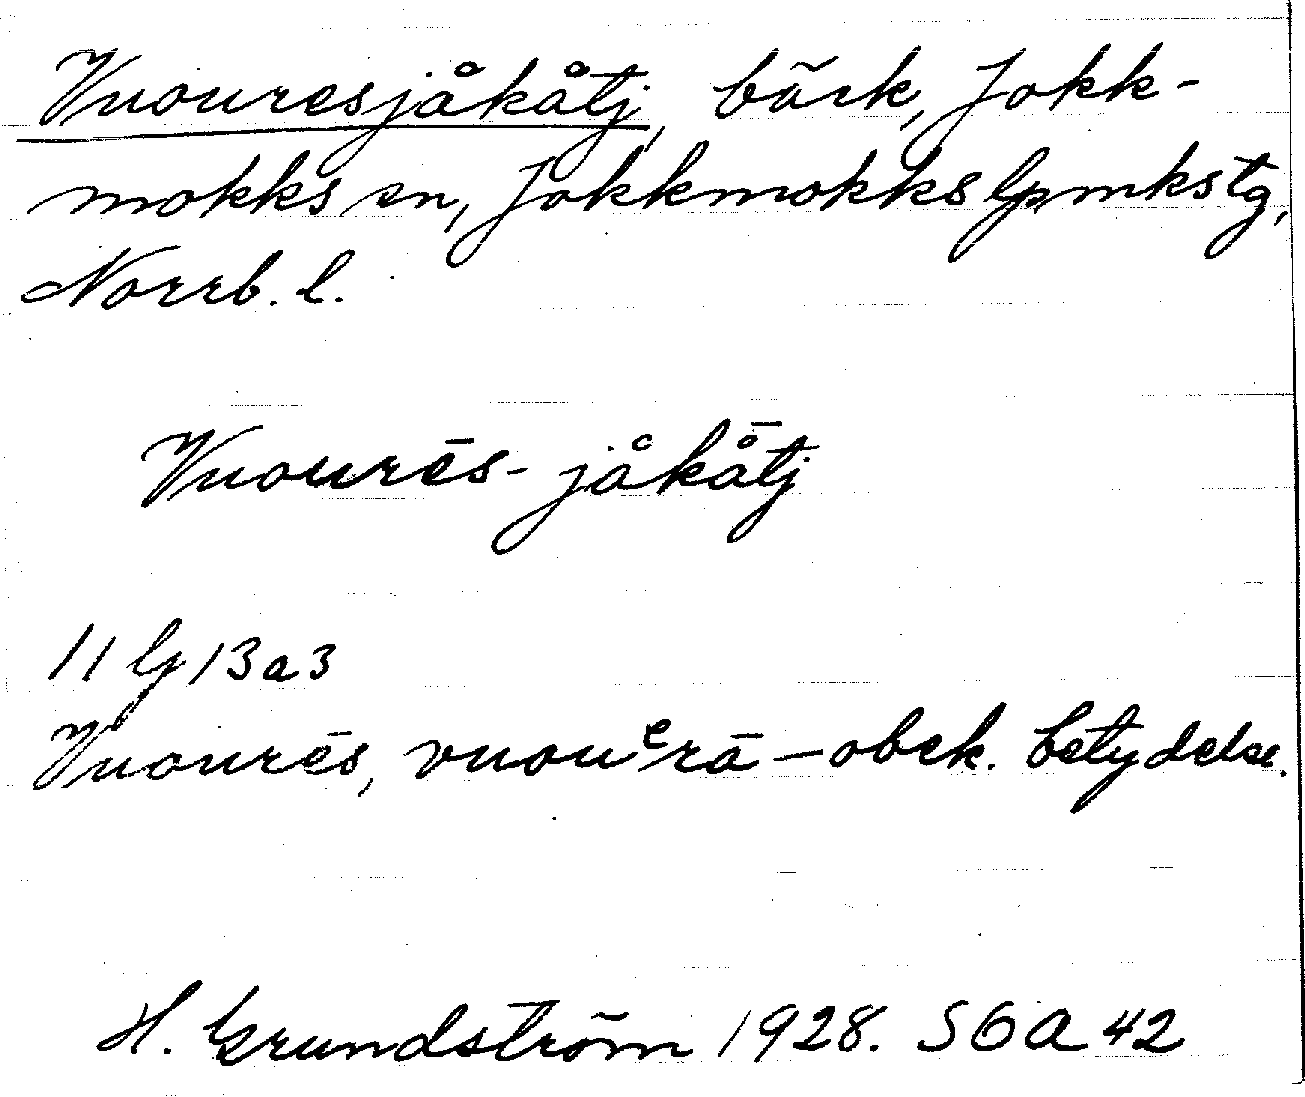 Vuouresjåkåtj, bäck, Jokk-
mokks sn, Jokkmokks lpmkstg,
Norrb. l.
Vuourēs- jåkå̄tj
11 G 13 a 3
Vuourēs, vuouᵉrā – obek. betydelse.
H. Grundström 1928. SOA 42